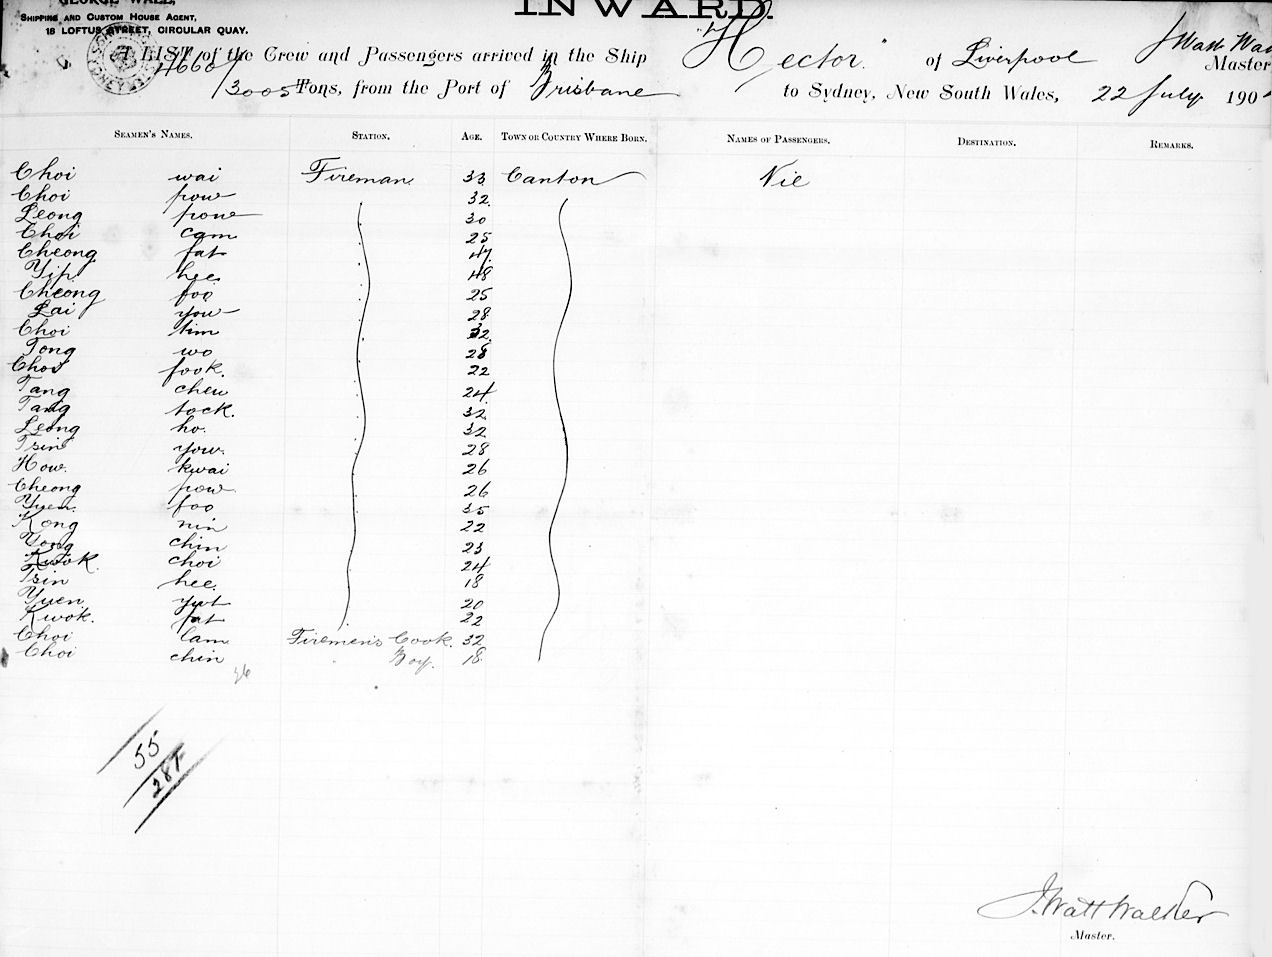 GEORGE WALL,
SHIPPING AND CUSTOM HOUSE AGENT,
18 LOFTUS STREET, CIRCULAR QUAY.
INWARD.
A LIST of the Crew and Passengers arrived in the Ship "Hector" of Liverpool J Watt Master
3005 Tons, from the Port of Brisbane to Sydney, New South Wales, 22 July 190
SEAMEN'S NAMES. STATION. AGE. TOWN OR COUNTRY WHERE BORN. NAMES OF PASSENGERS. DESTINATION. REMARKS.
Choi wai Fireman 33 Canton Nil
Choi pow 32
Leong pow 30
Choi cam 25
Cheong fat 47
Yip hee 48
Cheong foo 25
Lai you 28
Choi tim 32
Tong wo 28
Choi fook. 22
Tang cheu 24
Tang tock. 32
Leong ho. 32
Tsin yow. 28
How. kwai 26
Cheong pow 26
Yuen foo 35
Kong nin 22
Yong chin 23
Kwok. choi 24
Tsin hee. 18
Yuen yut 20
Kwok. fat 22
Choi lam Firemen's Cook. 32
Choi chin Boy. 18
26
55
281
J. Watt Walker
Master.